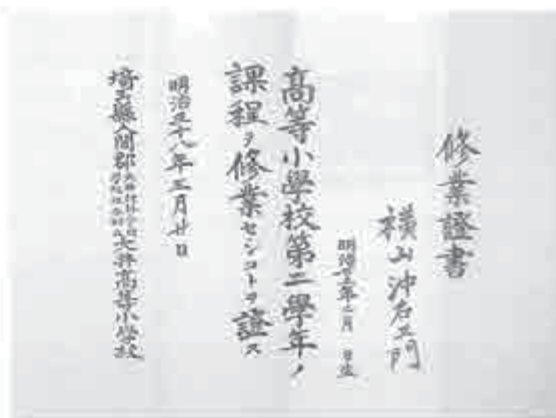 修業證書
横山沖右エ門
明治廿年二月 日生
高等小學校第二學年ノ
課程ヲ修業セシコトヲ證ス
明治三十八年三月廿日
埼玉縣入間郡大井高等小學校